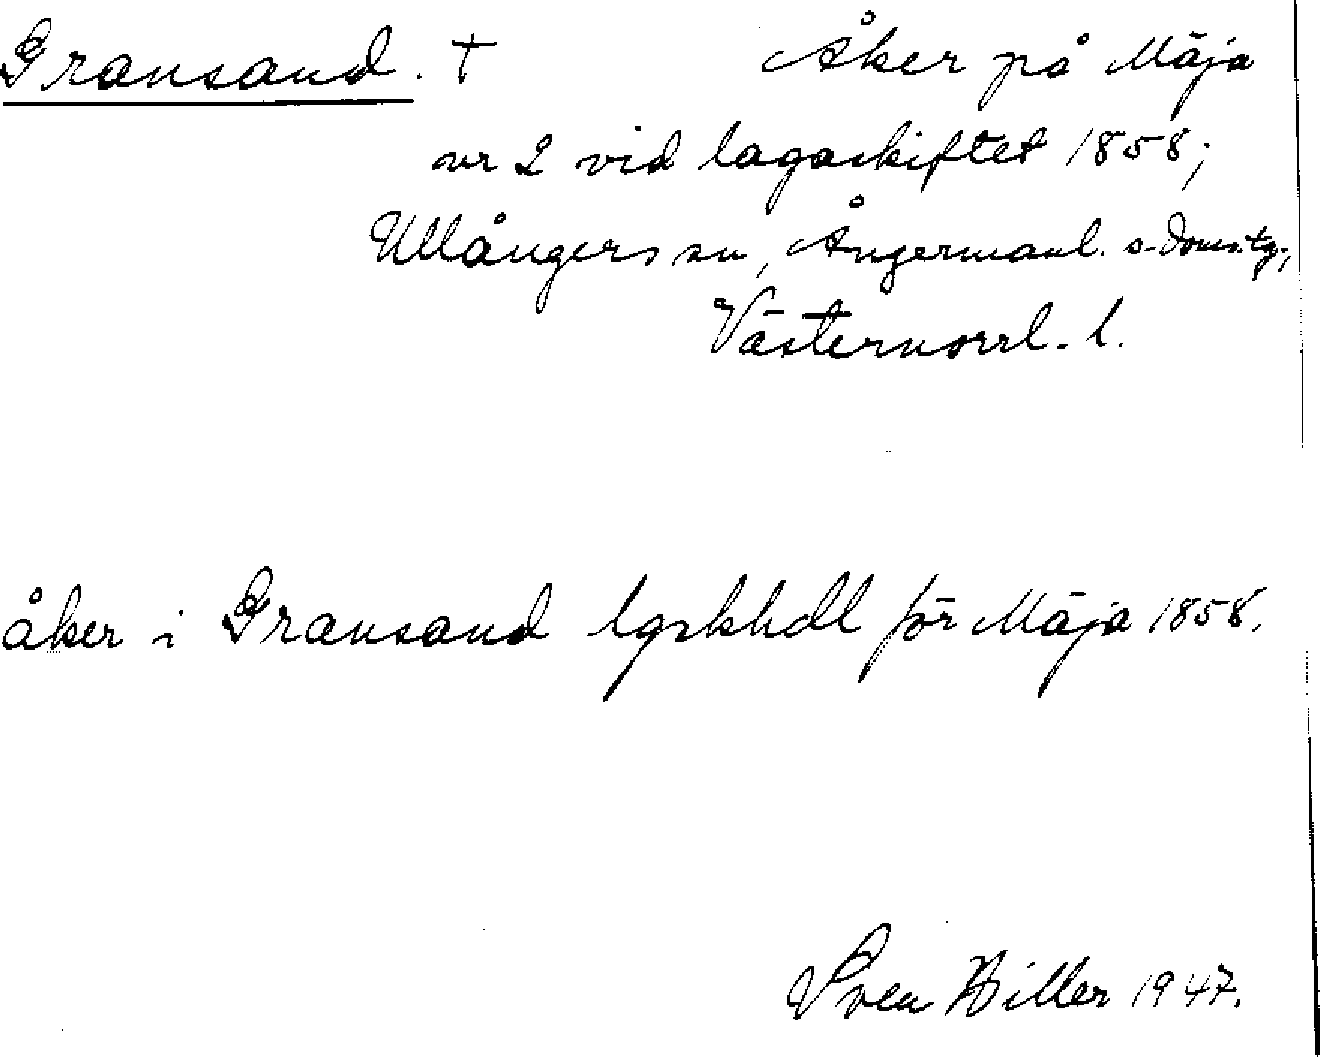 Gransand. † Åker på Mäja
nr 2 vid lagaskiftet 1858;
Ullångers sn, Ångermanl. s. doms.tg.,
Västernorrl. l.
åker i Gransand lgskhdl för Mäja 1858.
Sven Hiller 1947.